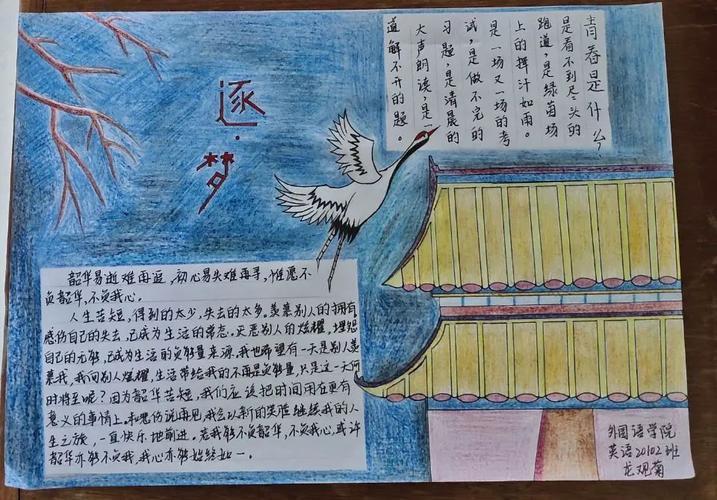 逐·梦
青春是什么
是看不到尽头的
跑道,是绿茵场
上的挥汗如雨。
是一场又一场的考
试,是做不完的
习题,是清晨的
大声朗读,是一
道解不开的题。
韶华易逝难再逗,初心易失难再寻,惟愿不
负韶华,不负我心。
人生苦短,得到的太少,失去的太多。羡慕别人的拥有
感伤自己的失去,已成为生活的常态。
别人的炫耀,埋怨
自己的无能,已成为生活的负能量来源。我也希望有一天是别人羡
慕我,我向别人炫耀,生活带给我的不再是负能量,只是这一天何
时将至呢?因为韶华苦短,我们应该把时间用在更有
意义的事情上。和悲伤说再见,我会以新的笑脸继续我的人
生之旅,一直快乐地前进。若我能不负韶华,不负我心,或许
韶华亦能不负我,我心亦能始终如一。
外国语学院
英语20102班
龙观菊